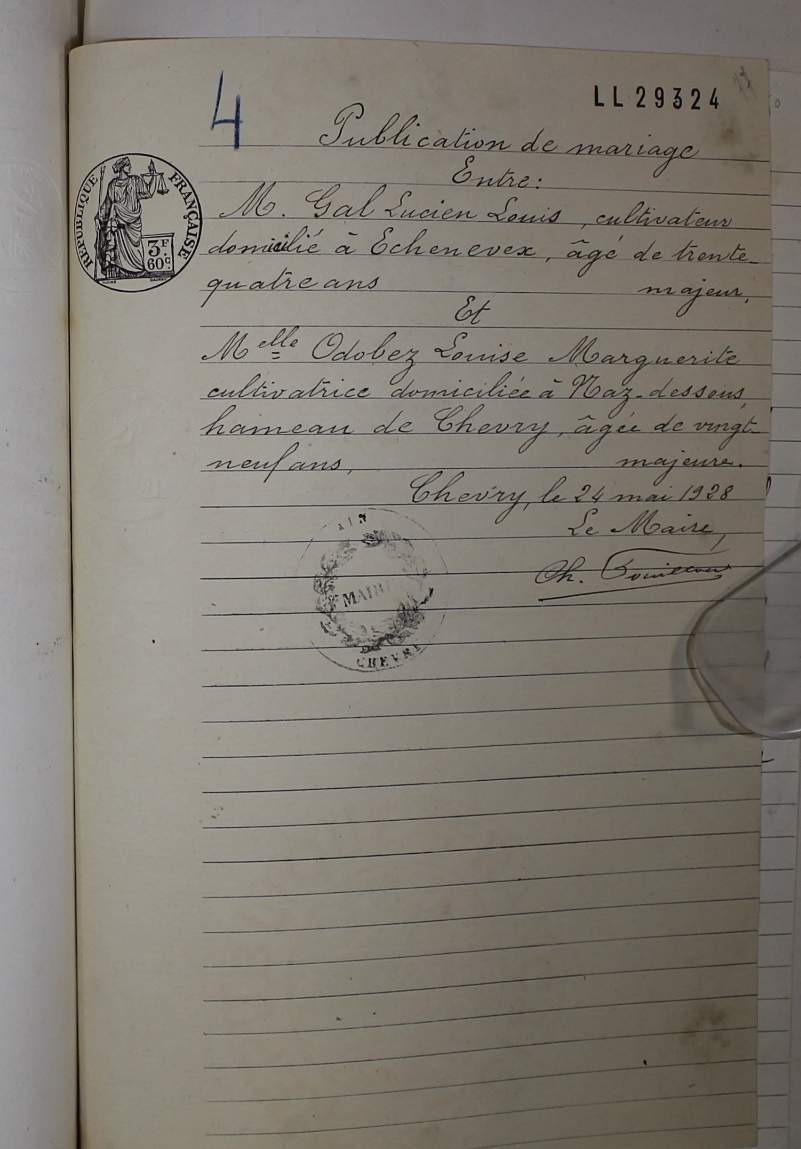 4
LL 29324
Publication de mariage
Entre:
RÉPUBLIQUE FRANÇAISE
3F
60c
M. Gal Lucien Louis, cultivateur
domicilié à Echenevex, âgé de trente-
quatre ans majeur,
Et
Melle Odobez Louise Marguerite
cultivatrice domiciliée à Naz-dessous,
hameau de Chevry, âgée de vingt-
neuf ans, majeure.
Chevry, le 24 mai 1928
Le Maire,
Ch.
AIN
MAIRIE
CHEVRY